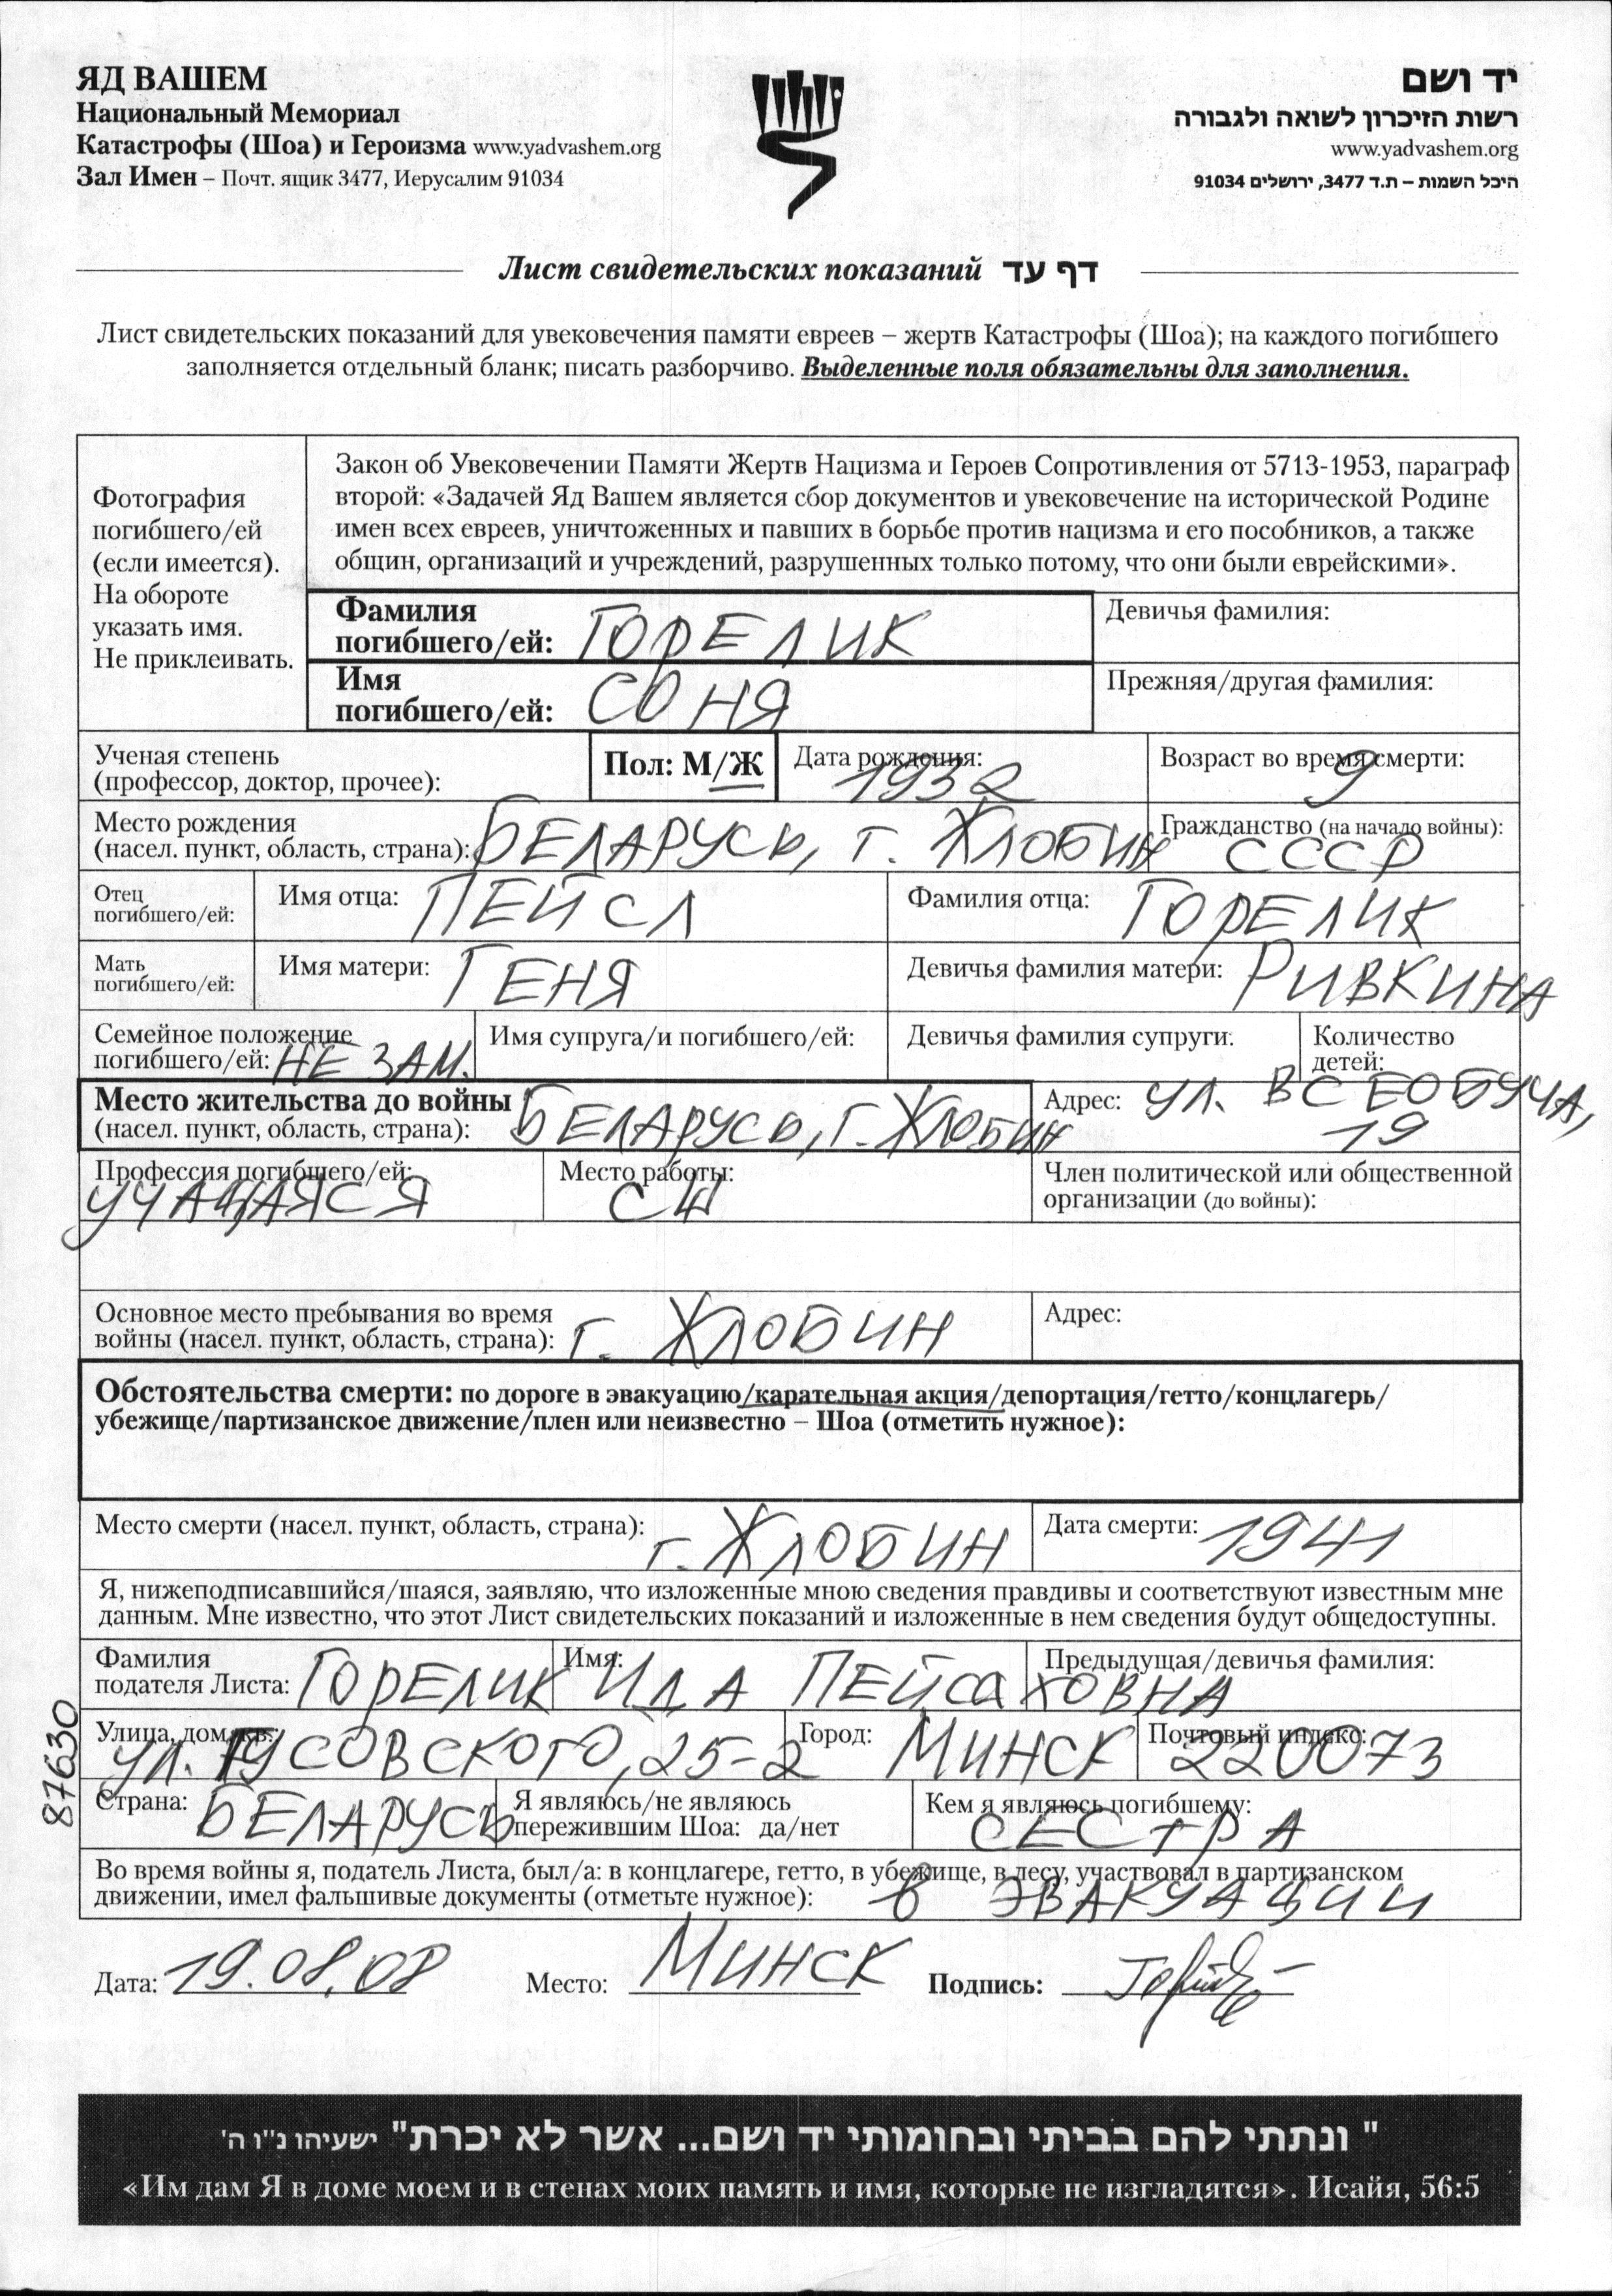 ЯД ВАШЕМ
Национальный Мемориал
Катастрофы (Шоа) и Героизма www.yadvashem.org
Зал Имен – Почт. ящик 3477, Иерусалим 91034
יד ושם
רשות הזיכרון לשואה ולגבורה
www.yadvashem.org
היכל השמות – ת.ד 3477, ירושלים 91034
Лист свидетельских показаний דף עד
Лист свидетельских показаний для увековечения памяти евреев – жертв Катастрофы (Шоа); на каждого погибшего
заполняется отдельный бланк; писать разборчиво. Выделенные поля обязательны для заполнения.
Фотография
погибшего/ей
(если имеется).
На обороте
указать имя.
Не приклеивать.
Закон об Увековечении Памяти Жертв Нацизма и Героев Сопротивления от 5713-1953, параграф
второй: «Задачей Яд Вашем является сбор документов и увековечение на исторической Родине
имен всех евреев, уничтоженных и павших в борьбе против нацизма и его пособников, а также
общин, организаций и учреждений, разрушенных только потому, что они были еврейскими».
Фамилия
погибшего/ей: ГОРЕЛИК
Девичья фамилия:
Имя
погибшего/ей: СОНЯ
Прежняя/другая фамилия:
Ученая степень
(профессор, доктор, прочее):
Пол: М/Ж
Дата рождения: 1932
Возраст во время смерти: 9
Место рождения
(насел. пункт, область, страна): БЕЛАРУСЬ, г. ЖЛОБИН
Гражданство (на начало войны):
СССР
Отец
погибшего/ей:
Имя отца: ПЕЙСЛ
Фамилия отца: ГОРЕЛИК
Мать
погибшего/ей:
Имя матери: ГЕНЯ
Девичья фамилия матери: РИВКИНА
Семейное положение
погибшего/ей: НЕ ЗАМ.
Имя супруга/и погибшего/ей:
Девичья фамилия супруги:
Количество
детей:
Место жительства до войны
(насел. пункт, область, страна): БЕЛАРУСЬ, г. ЖЛОБИН
Адрес: УЛ. ВСЕОБУЧА,
19
Профессия погибшего/ей:
УЧАЩАЯСЯ
Место работы:
СШ
Член политической или общественной
организации (до войны):
Основное место пребывания во время
войны (насел. пункт, область, страна): г. ЖЛОБИН
Адрес:
Обстоятельства смерти: по дороге в эвакуацию/карательная акция/депортация/гетто/концлагерь/
убежище/партизанское движение/плен или неизвестно – Шоа (отметить нужное):
Место смерти (насел. пункт, область, страна): г. ЖЛОБИН
Дата смерти: 1941
Я, нижеподписавшийся/шаяся, заявляю, что изложенные мною сведения правдивы и соответствуют известным мне
данным. Мне известно, что этот Лист свидетельских показаний и изложенные в нем сведения будут общедоступны.
Фамилия
подателя Листа: ГОРЕЛИК
Имя: ИДА ПЕЙСАХОВНА
Предыдущая/девичья фамилия:
Улица, дом, кв.:
УЛ. ГУСОВСКОГО, 25-2
Город: МИНСК
Почтовый индекс:
220073
Страна: БЕЛАРУСЬ
Я являюсь/не являюсь
пережившим Шоа: да/нет
Кем я являюсь погибшему:
СЕСТРА
Во время войны я, податель Листа, был/а: в концлагере, гетто, в убежище, в лесу, участвовал в партизанском
движении, имел фальшивые документы (отметьте нужное): В ЭВАКУАЦИИ
Дата: 19.08.08
Место: МИНСК
Подпись:
87630
" ונתתי להם בביתי ובחומותי יד ושם... אשר לא יכרת" ישעיהו נ"ו ה'
«Им дам Я в доме моем и в стенах моих память и имя, которые не изгладятся». Исайя, 56:5